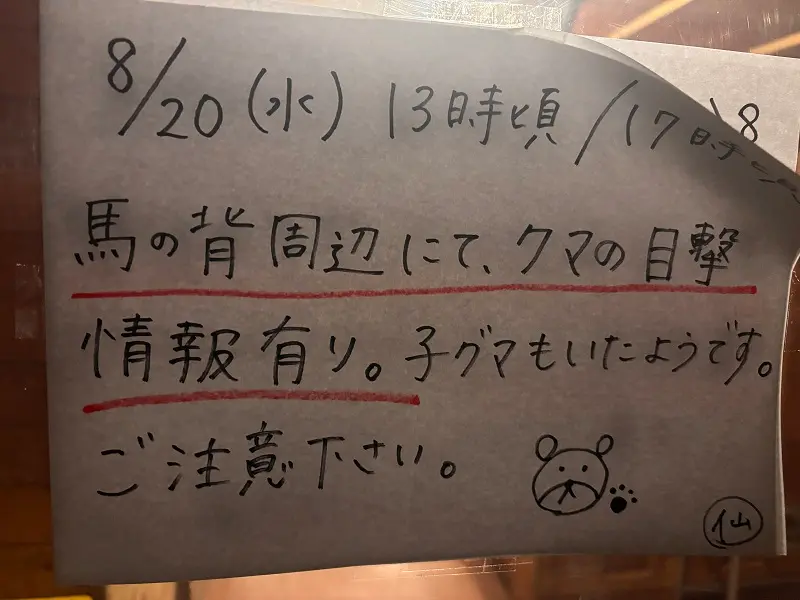 8/20(水) 13時頃/17時
馬の背周辺にて、クマの目撃
情報有り。子グマもいたようです。
ご注意下さい。
仙